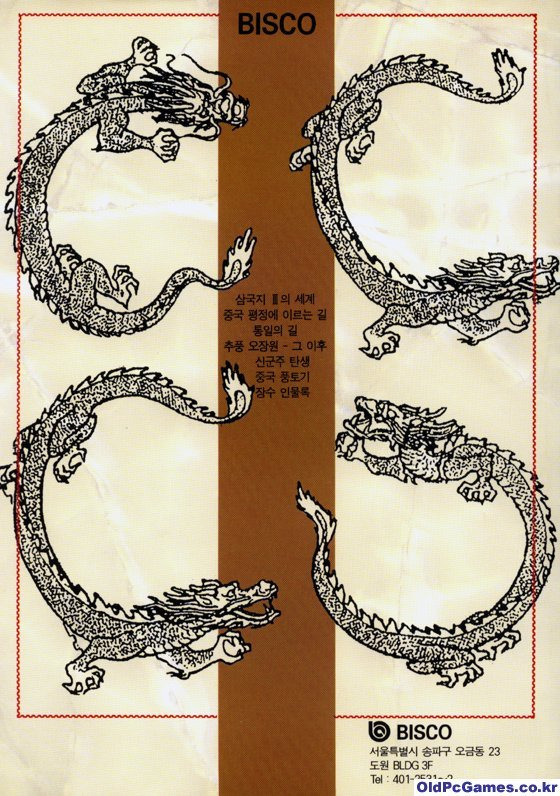 BISCO
삼국지 Ⅲ의 세계
중국 평정에 이르는 길
통일의 길
추풍 오장원 - 그 이후
신군주 탄생
중국 풍토기
장수 인물록
BISCO
서울특별시 송파구 오금동 23
도원 BLDG 3F
Tel : 401-2531~2
OldPcGames.co.kr